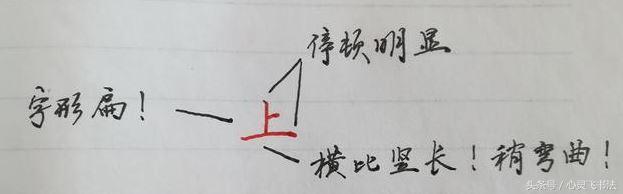 停顿明显
字形扁！
上
横比竖长！稍弯曲！
头条号／心灵飞书法